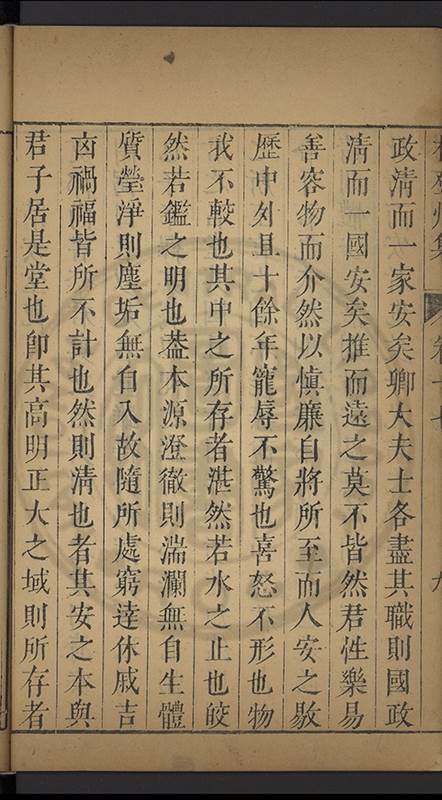 政清而一家安矣卿大夫士各盡其職則國政
清而一國安矣推而遠之莫不皆然君性樂易
善容物而介然以慎廉自將所至而人安之敭
歷中外且十餘年寵辱不驚也喜怒不形也物
我不較也其中之所存者湛然若水之止也皎
然若鑑之明也葢本源澄徹則湍瀾無自生體
質瑩淨則塵垢無自入故隨所處窮達休戚吉
凶禍福皆所不計也然則清也者其安之本與
君子居是堂也即其高明正大之域則所存者